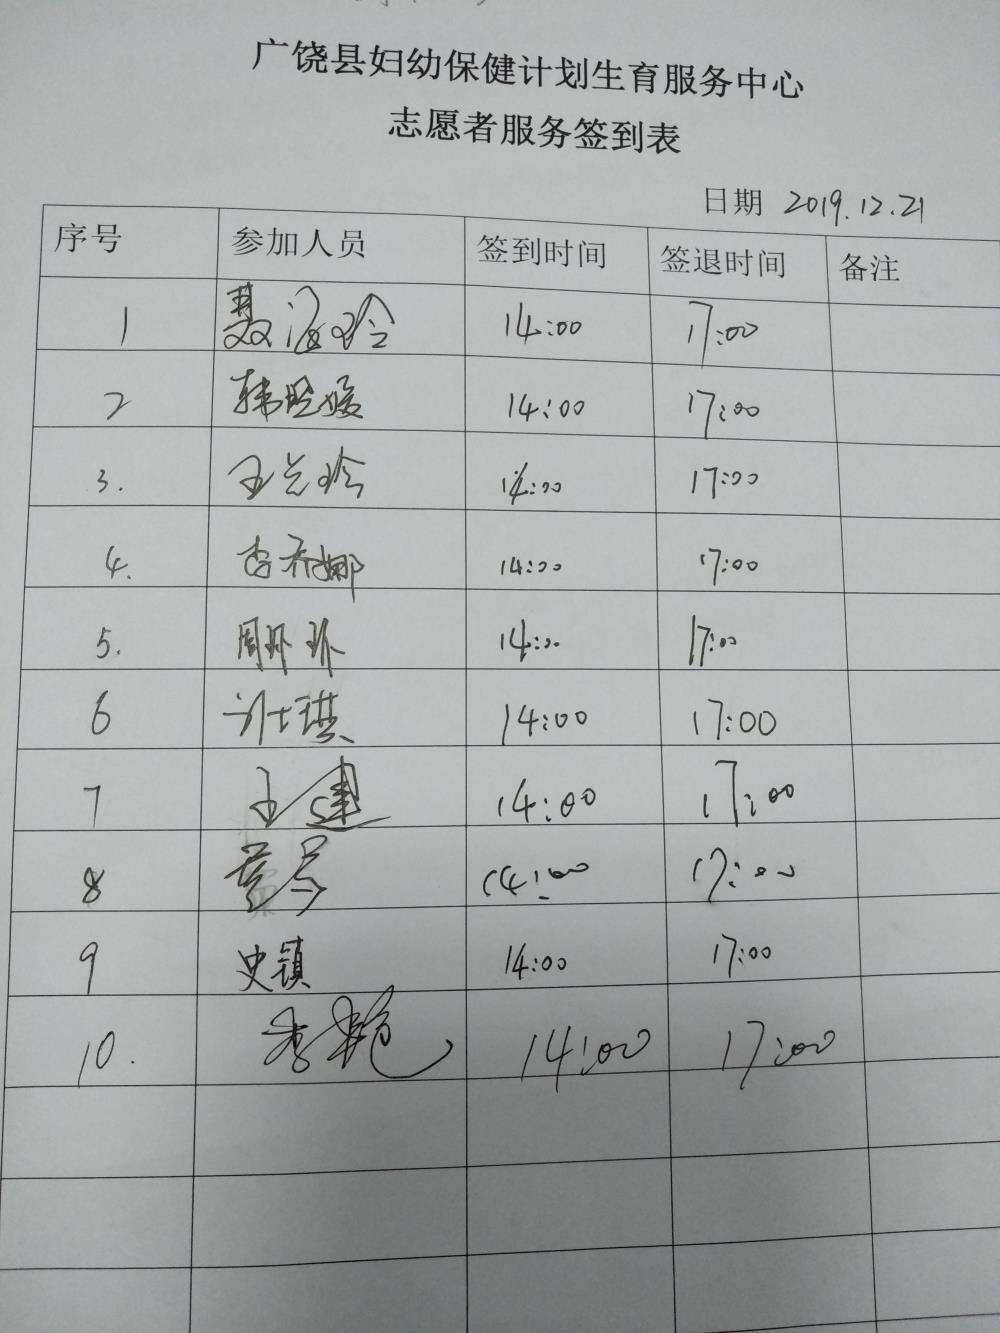 广饶县妇幼保健计划生育服务中心
志愿者服务签到表
日期 2019.12.21
序号 参加人员 签到时间 签退时间 备注
1 聂海玲 14:00 17:00
2 韩 媛 14:00 17:00
3. 王兰玲 14:00 17:00
4. 李乔娜 14:00 17:00
5. 周环环 14:00 17:00
6 刘士琪 14:00 17:00
7 王建 14:00 17:00
8 14:00 17:00
9 史镇 14:00 17:00
10. 李艳 14:00 17:00